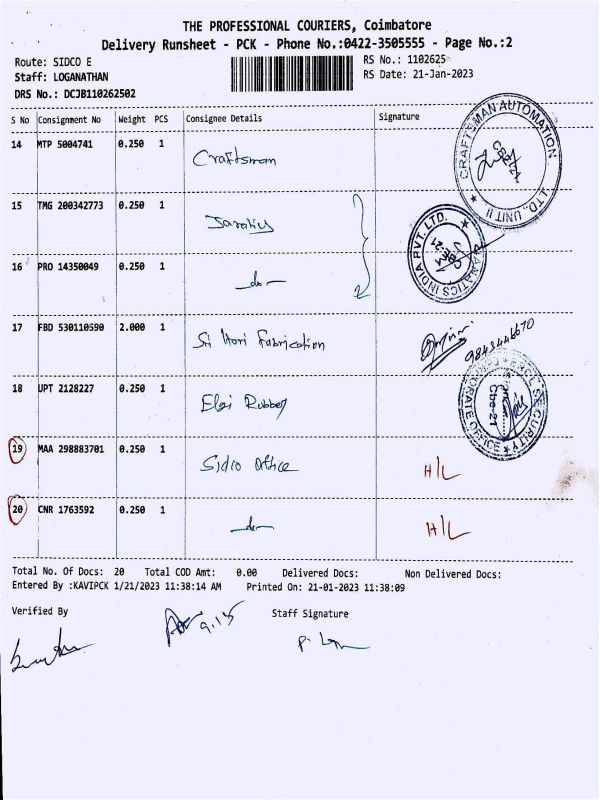 THE PROFESSIONAL COURIERS, Coimbatore
Delivery Runsheet - PCK - Phone No.:0422-3505555 - Page No.:2
Route: SIDCO E
RS No.: 1102625
Staff: LOGANATHAN
RS Date: 21-Jan-2023
DRS No.: DCJB110262502
S No Consignment No Weight PCS Consignee Details Signature
14 MTP 5004741 0.250 1 Craftsman
CRAFTSMAN AUTOMATION LTD. UNIT II
15 TMG 200342773 0.250 1
INDIA PVT. LTD.
16 PRO 14350049 0.250 1 —do—
17 FBD 530110590 2.000 1 Sri Hari Fabrication
18 UPT 2128227 0.250 1 Elgi Rubber
SECURITY
19 MAA 298883701 0.250 1 Sidco Office H/L
20 CNR 1763592 0.250 1 —do— H/L
Total No. Of Docs: 20 Total COD Amt: 0.00 Delivered Docs: Non Delivered Docs:
Entered By :KAVIPCK 1/21/2023 11:38:14 AM Printed On: 21-01-2023 11:38:09
Verified By
Staff Signature
9.15